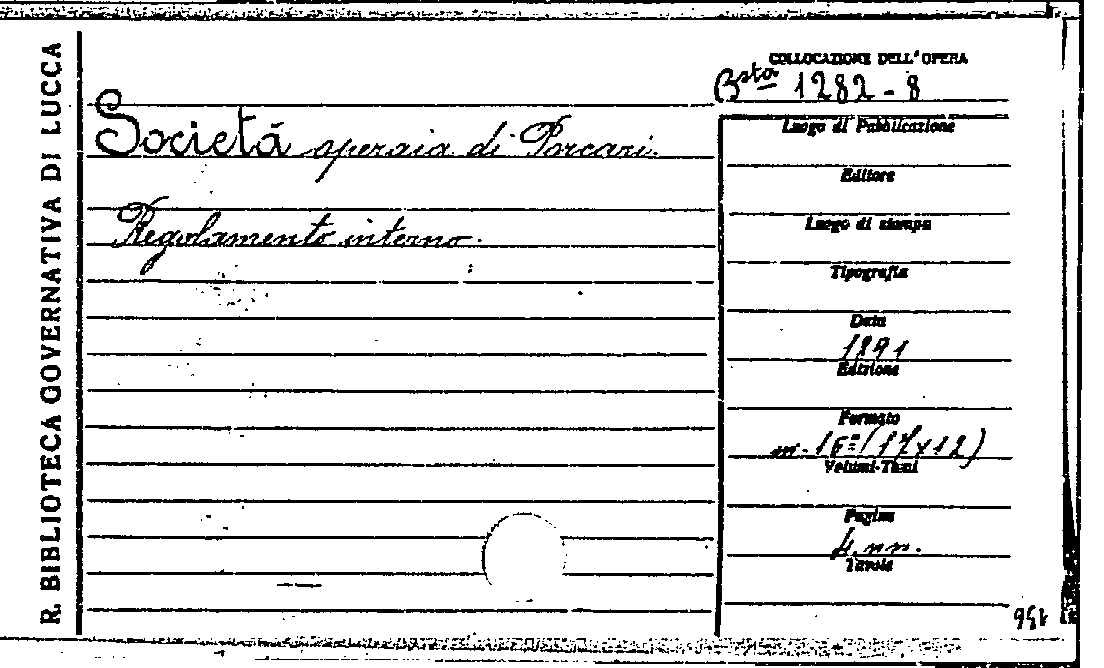 R. BIBLIOTECA GOVERNATIVA DI LUCCA
Società operaia di Porcari.
Regolamento interno.
COLLOCAZIONE DELL'OPERA
Bsta 1282 - 8
Luogo di Pubblicazione
Editore
Luogo di stampa
Tipografia
Data
1891
Edizione
Formato
m- 16º (17x12)
Volumi-Tomi
Pagine
4. nn.
Tavole